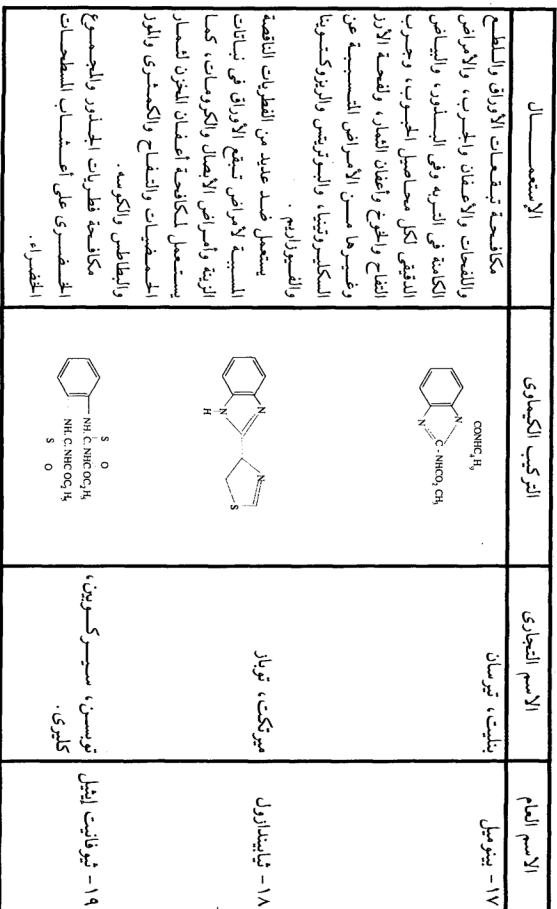 الاسم العام
الاسم التجارى
التركيب الكيماوى
الاستعمـــــال
١٧- بينوميل
بنليت، تيرسان
CONHC4H9
N
C - NHCO2 CH3
N
مكافـحـة تـبـقـعـات الأوراق والـلطـع
واللفحات والأعـفـان والجـرب، والأمراض
الكامنة فى التـربه وفى الـبـذور، والبيـاض
الدقيقى لكل محـاصيل الحبـوب، وجـرب
التفاح والخوخ وأعفان الثمار، ولفحـة الأرز
وغـيـرهـا مـن الأمـراض المـتـسـبـبـة عن
السكليـروتينيا، والبـوتريتس والريزوكـتـونيا
والفـيـوزاريم .
١٨- ثيابيندازول
ميرتكت، توباز
N
N
H
N
S
يستعمل ضـد عديد من الفطريات الناقصة
المسببة لأمراض تـبقع الأوراق فى نبـاتات
الزينة وأمـراض الأبصال والكرومـات، كمـا
يسـتـعـمل لمكافـحـة أعـفـان المخزن لثـمـار
الحـمـضيـات والتـفـاح والكمـثـرى والموز
والبطاطس والكوسه .
١٩- ثيوفانيت إيثيل
توبسـن، سـيـركـوبين،
كليرى.
S O
NH. C. NHC OC2H5
NH. C. NHC OC2H5
S O
مكافـحـة فطـريات الجـذور والمجـمـوع
الخـضـرى على أعـشـاب المسطحـات
الخضـراء.